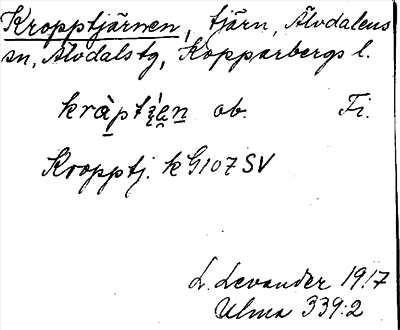 Kropptjärnen, tjärn, Älvdalens
sn, Älvdals tg, Kopparbergs l.
ob. Fi.
Kropptj. k G107 SV
L. Levander 1917
Ulma 339:2